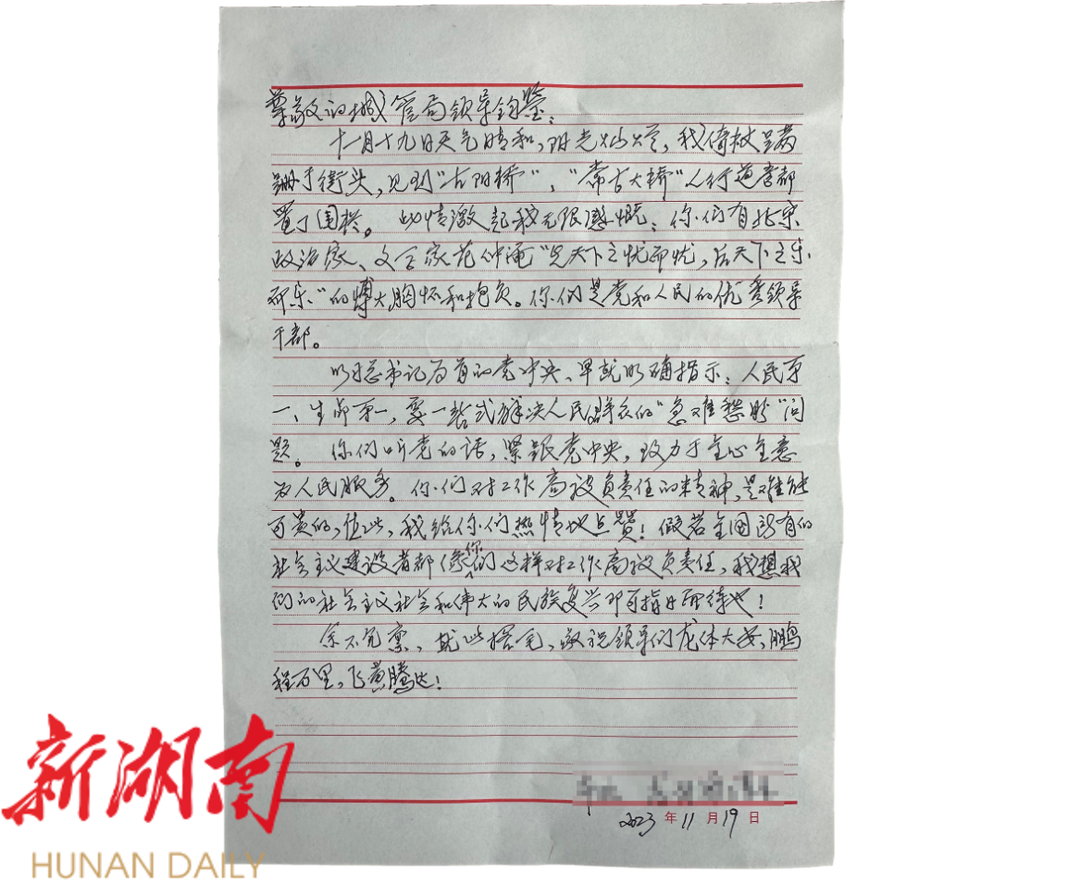 尊敬的城管局领导钧鉴：
十一月十九日天气晴和，阳光灿烂，我倚杖蹒
跚于街头，见到“古阳桥”、“常古大桥”人行道旁都
置了围栏。此情激起我无限感慨：你们有北宋
政治家、文学家范仲淹“先天下之忧而忧，后天下之乐
而乐”的博大胸怀和抱负。你们是党和人民的优秀领导
干部。
以习总书记为首的党中央、早就明确指示：人民第
一、生命第一，要一站式解决人民群众的“急难愁盼”问
题。你们听党的话，紧跟党中央，致力于全心全意
为人民服务。你们对工作高度负责任的精神，是难能
可贵的，值此，我给你们热情地点赞！假若全国所有的
社会主义建设者都像你们这样对工作高度负责任，我想我
们的社会主义社会和伟大的民族复兴即可指日而待也！
余不完禀，就此搁笔，敬祝领导们龙体大安，鹏
程万里，飞黄腾达！
2023年11月19日
新湖南
HUNAN DAILY